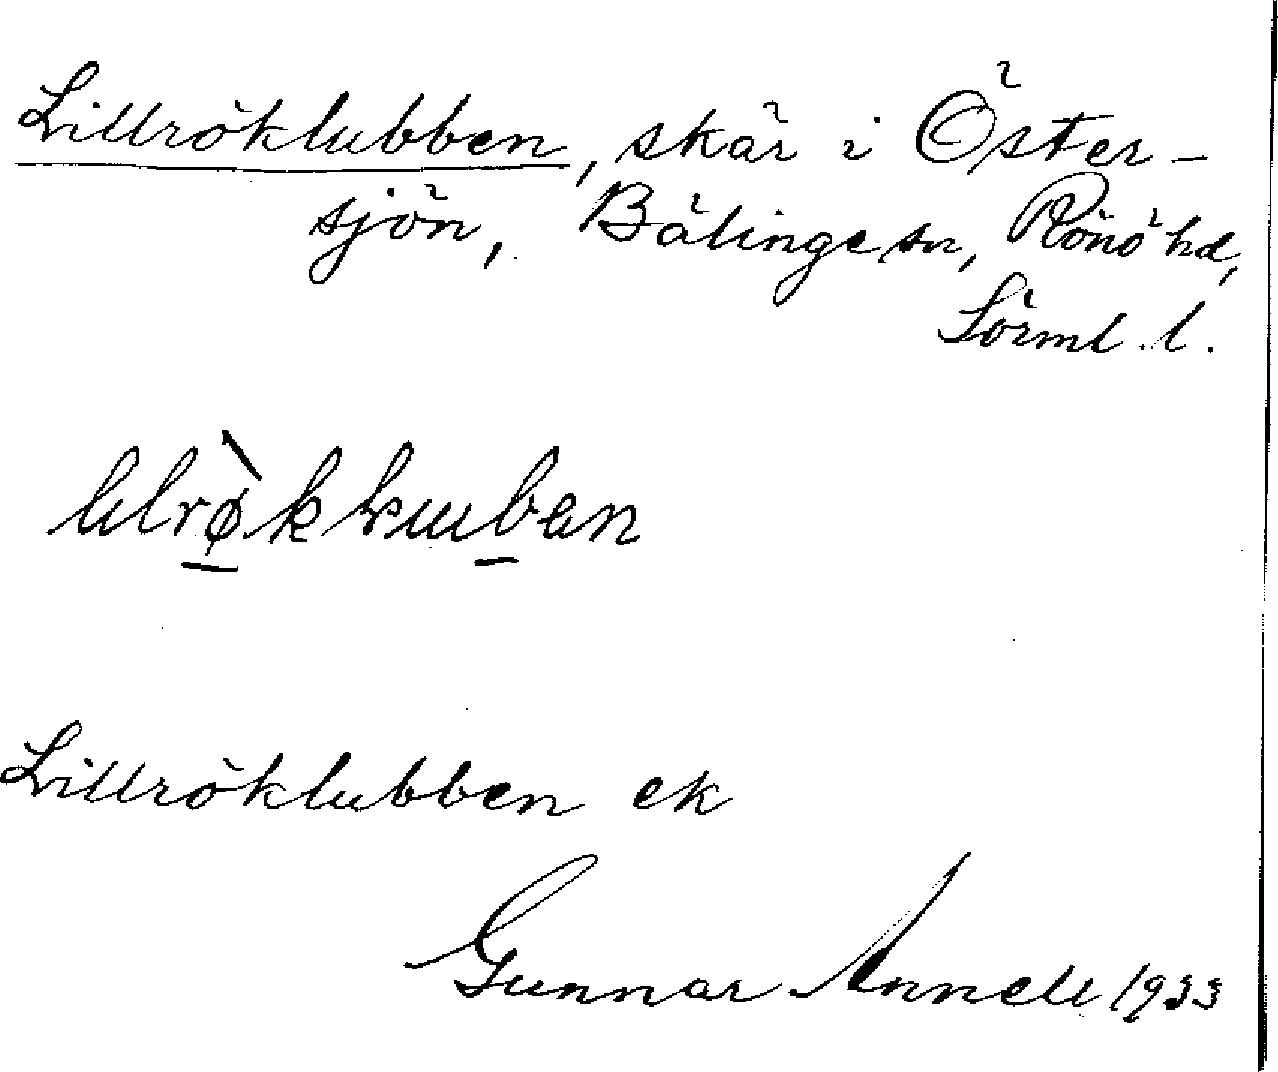 Lillröklubben, skär i Öster-
sjön, Bälinge sn, Rönö hd,
Sörml. l.
Lillröklubben ek
Gunnar Annell 1933